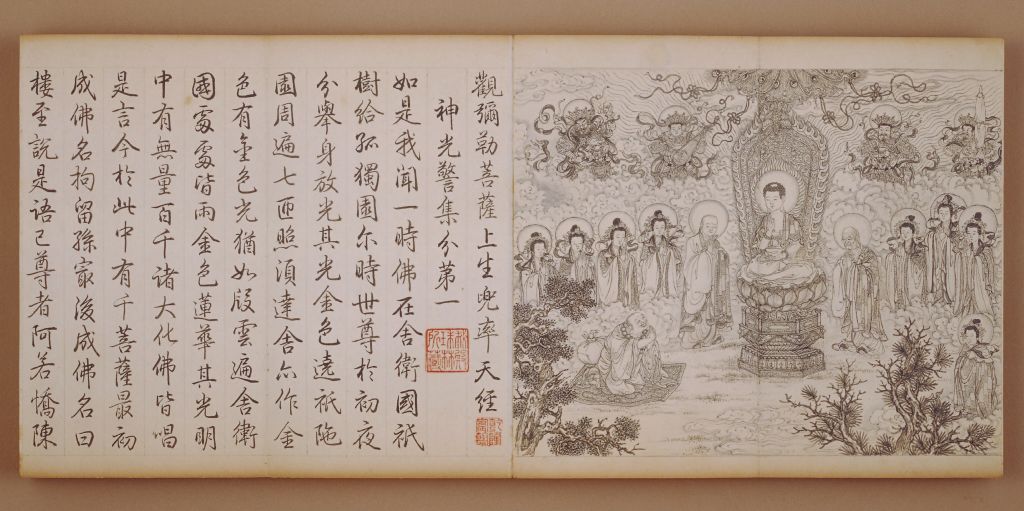 觀彌勒菩薩上生兜率天經
神光警集分第一
如是我聞一時佛在舍衛國祇
樹給孤獨園尔時世尊於初夜
分舉身放光其光金色遶祇陁
園周遍七匝照須達舍亦作金
色有金色光猶如段雲遍舍衛
國處處皆雨金色蓮華其光明
中有無量百千諸大化佛皆唱
是言今於此中有千菩薩最初
成佛名拘留孫最後成佛名曰
樓至說是語已尊者阿若憍陳